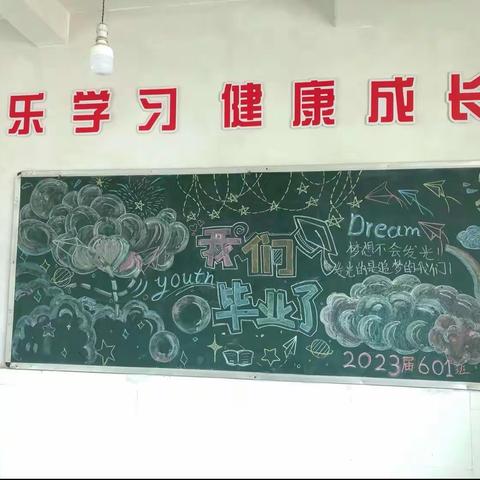 乐学习 健康成长
我们
毕业了
youth
Dream
梦想不会发光!
发光的是追梦的我们!
2023届601班